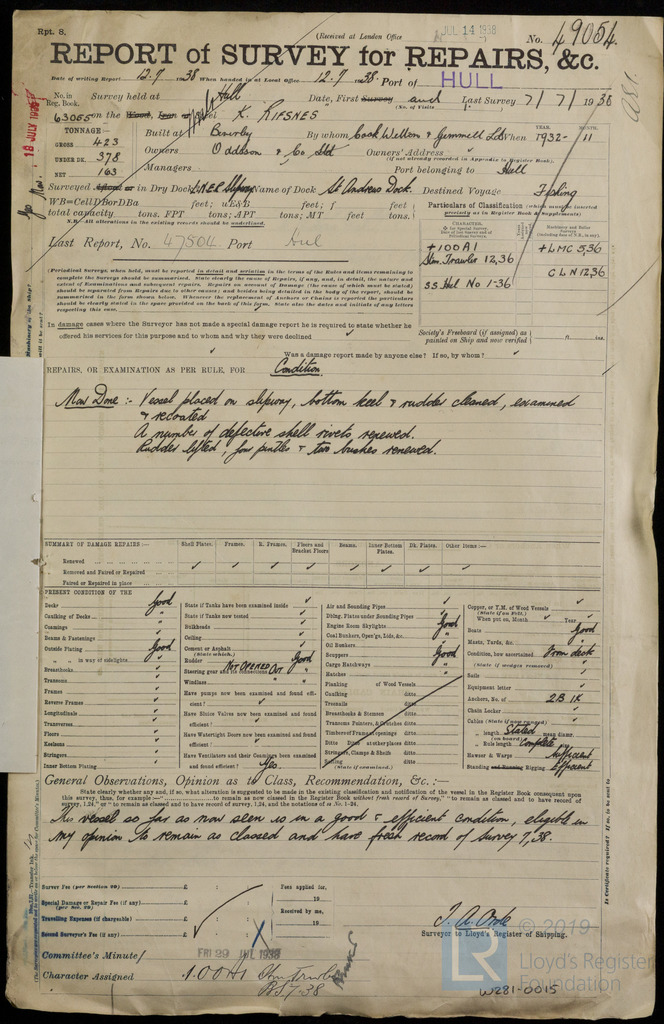 Rpt. 8.
(Received at London Office JUL 14 1938
No. 49054.
REPORT of SURVEY for REPAIRS, &c.
Date of writing Report 12.7 1938 When handed in at Local Office 12.7 1938 Port of HULL
No. in Reg. Book. Survey held at Hull Date, First Survey and Last Survey 7/7/1938
(No. of Visits
63055 on the K. RIFSNES
TONNAGE
GROSS 423
UNDER DK. 378
NET 163
Built at Beverley By whom Cook Welton & Gemmell Ltd When YEAR. 1932 MONTH. 11
Owners Oddsson & Co Ltd Owners' Address
(if not already recorded in Appendix to Register Book).
Managers Port belonging to Hull
Surveyed Afloat or in Dry Dock L.N.E.R. Slipway Name of Dock St Andrews Dock. Destined Voyage Fishing
18 JULY 1938
WB=CellDBorDBa feet; uE&B feet; f feet
total capacity tons. FPT tons; APT tons; MT feet tons.
N.B. All alterations in the existing records should be underlined.
Last Report, No. 47504. Port Hul
Particulars of Classification (which must be inserted precisely as in Register Book & Supplements)
+100A1
Stm. Trawler 12,36
SS Hul No 1-36
+LMC 5,36
CLN 12,36
(Periodical Surveys, when held, must be reported in detail and seriatim in the terms of the Rules and items remaining to
complete the Surveys should be summarised. State clearly the cause of Repairs, if any, and, in detail, the nature and
extent of Examinations and subsequent repairs. Repairs on account of Damage (the cause of which must be stated)
should be separated from Repairs due to other causes; and besides being detailed in the body of the report, should be
summarised in the form shown below. Whenever the replacement of Anchors or Chains is reported the particulars
should be clearly stated in the space provided on the back of this form. State also the dates and initials of any letters
respecting this case.
In damage cases where the Surveyor has not made a special damage report he is required to state whether he
offered his services for this purpose and to whom and why they were declined
Society's Freeboard (if assigned) as painted on Ship and now verified
Was a damage report made by anyone else? If so, by whom?
REPAIRS, OR EXAMINATION AS PER RULE, FOR Condition
Now Done :- Vessel placed on slipway, bottom keel & rudder cleaned, examined
& recoated
A number of defective shell rivets renewed.
Rudder lifted, four pintles & two bushes renewed.
SUMMARY OF DAMAGE REPAIRS :— Shell Plates. Frames. R. Frames. Floors and Bracket Floors Beams. Inner Bottom Plates. Dk. Plates. Other Items :—
Renewed
Removed and Faired or Repaired
Faired or Repaired in place
PRESENT CONDITION OF THE
Decks Good
Caulking of Decks "
Coamings "
Beams & Fastenings "
Outside Plating Good
" " in way of sidelights "
Breasthooks
Transoms
Frames
Reverse Frames
Longitudinals
Transverses
Floors
Keelsons
Stringers
Inner Bottom Plating
State if Tanks have been examined inside
State if Tanks now tested
Bulkheads
Ceiling
Cement or Asphalt (State which)
Rudder Good
Steering gear and its connections NOT OPENED OUT "
Windlass "
Have pumps now been examined and found efficient?
Have Sluice Valves now been examined and found efficient?
Have Watertight Doors now been examined and found efficient?
Have Ventilators and their Coamings been examined and found efficient? Yes.
Air and Sounding Pipes
Dblng. Plates under Sounding Pipes
Engine Room Skylights Good
Coal Bunkers, Open'gs, Lids, &c. "
Oil Bunkers
Scuppers Good
Cargo Hatchways "
Hatches
Planking of Wood Vessels
Caulking ditto
Treenails ditto
Breasthooks & Stemson ditto
Transoms Pointers, & Crutches ditto
Timbers of Frame at openings ditto
Ditto Ditto at other places ditto
Stringers, Clamps & Shelfs ditto
Copper, or Y.M. of Wood Vessels
(State if on Felt.)
When put on, Month Year
Boats Good
Masts, Yards, &c. "
Condition, how ascertained From deck
(State if wedges removed)
Sails
Equipment letter
Anchors, No. of 2B 1K
Chain Locker
Cables (State if now ranged)
" length Stated mean diamr.
" Rule length Complete
Hawser & Warps Sufficient
Standing and Running Rigging Efficient
General Observations, Opinion as to Class, Recommendation, &c. :—
State clearly whether any, and if so, what alteration is suggested to be made in the existing classification and notification of the vessel in the Register Book consequent upon
This vessel so far as now seen is in a good & efficient condition, eligible in
my opinion to remain as classed and have fresh record of survey 7,38.
Survey Fee (per Section 29) £ : :
Special Damage or Repair Fee (if any) £
Travelling Expenses (if chargeable) £
Second Surveyor's Fee (if any) £
Fees applied for, 19
Received by me, 19
Surveyor to Lloyd's Register of Shipping.
Committee's Minute FRI 29 JUL 1938
Character Assigned 100A1 Stm Trawler
BS 7-38
© 2019
Lloyd's Register
Foundation
W281-0015